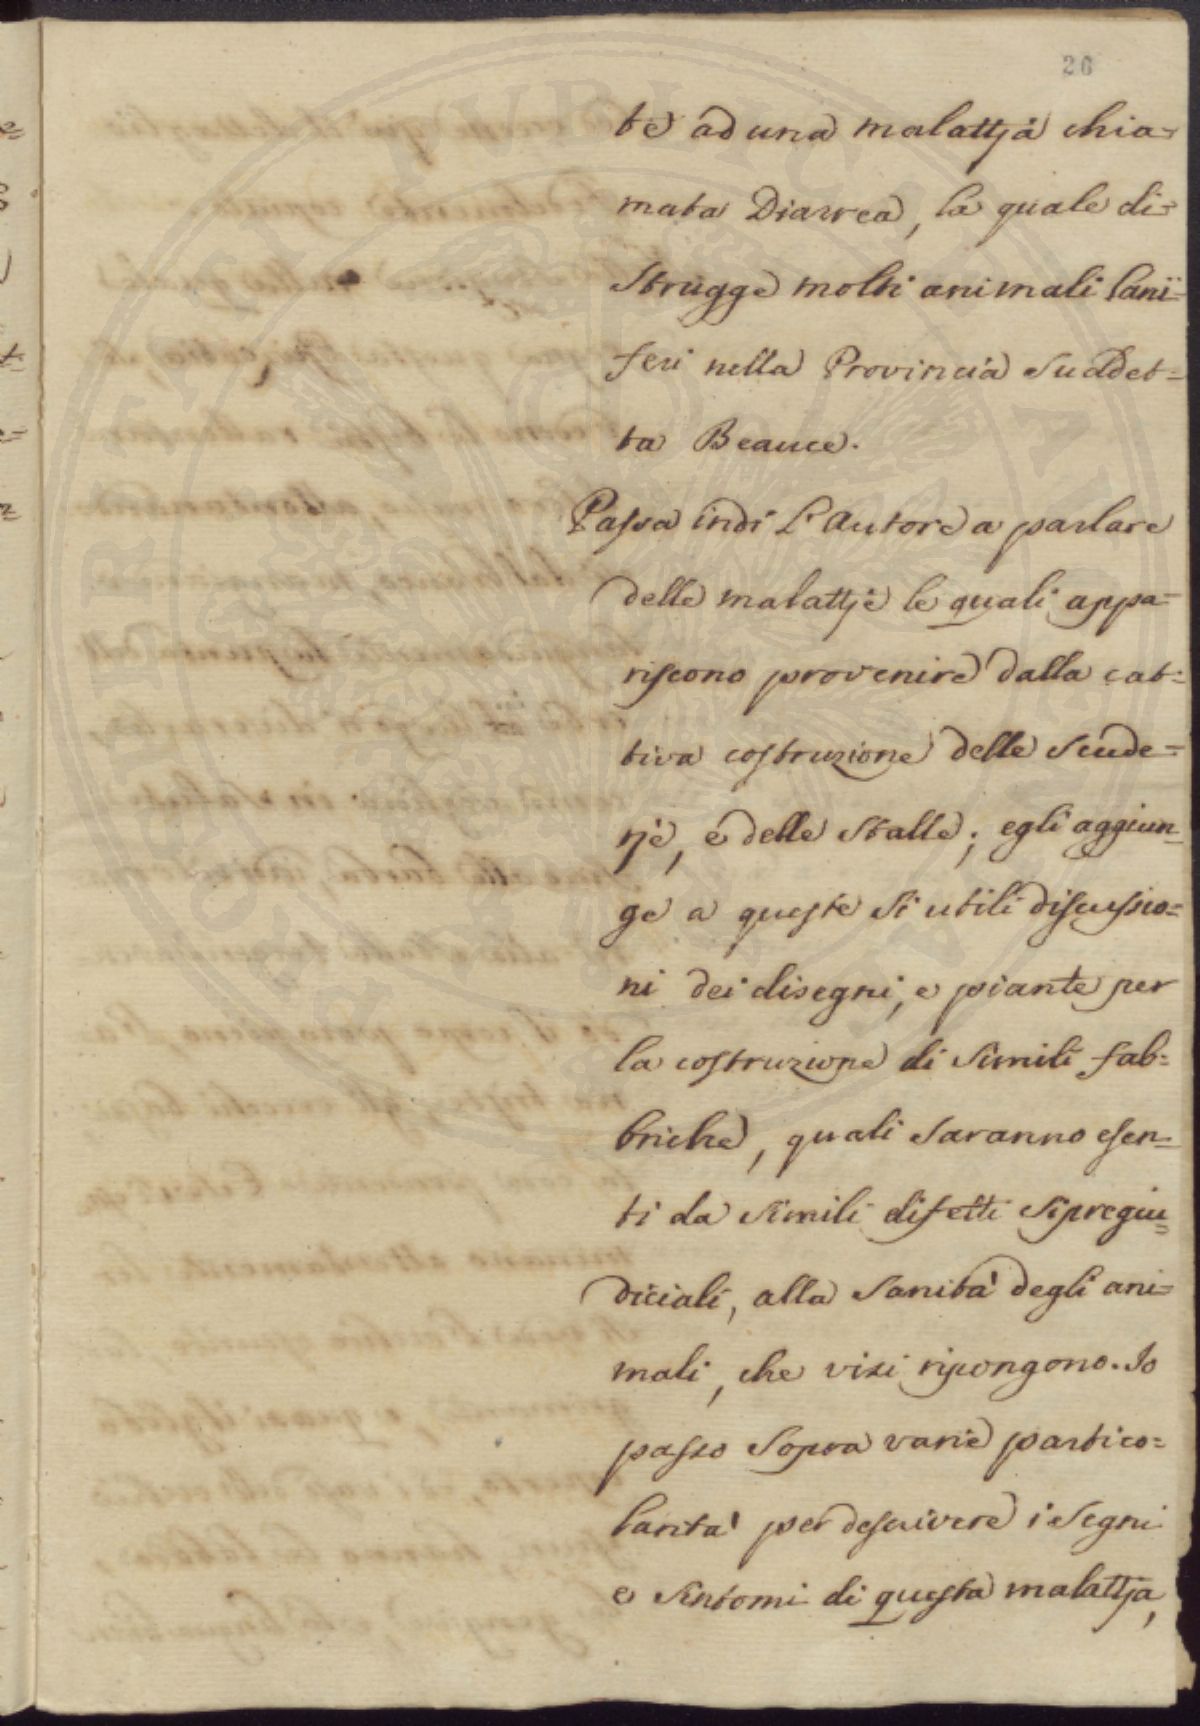 26
te ad una malattja chia=
mata Diarrea, la quale di=
strugge molti animali lani=
feri nella Provincia Suddet=
ta Beauce.
Passa indi L'Autore a parlare
delle malattje le quali appa=
riscono provenire dalla cat=
tiva costruzione delle Scude=
rje, e delle Stalle; egli aggiun=
ge a queste si utili discussio=
ni dei disegni, e piante per
la costruzione di Simili fab=
briche, quali saranno esen=
ti da Simili difetti si pregiu=
diciali, alla Sanità degli ani=
mali, che vi si ripongono. Io
passo Sopra varie partico=
larita' per descrivere i Segni
e Sintomi di questa malattja,